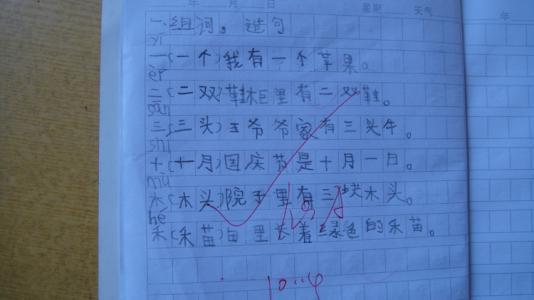 年 月 日 星期 天气 年
一、组词，造句
yī
一(一个)我有一个苹果。
èr
二(二双)鞋柜里有二双鞋。
sān
三(三头)王爷爷家有三头牛。
shí
十(十月)国庆节是十月一日。
mù
木(木头)院子里有三块木头。
hé
禾(禾苗)田里长着绿色的禾苗。
10.4